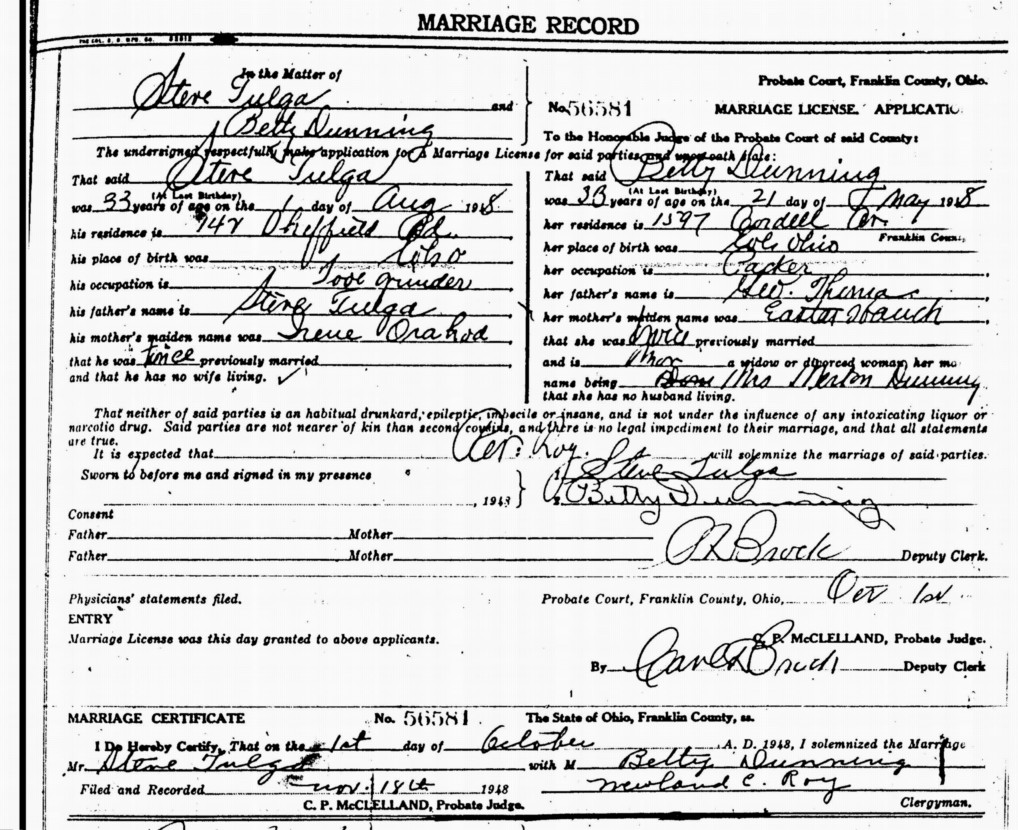 MARRIAGE RECORD
In the Matter of
Steve Tulga
and
Betty Dunning
Probate Court, Franklin County, Ohio.
No. 56581 MARRIAGE LICENSE. APPLICATIO
To the Honorable Judge of the Probate Court of said County:
The undersigned respectfully make application for a Marriage License for said parties and upon oath state:
That said Steve Tulga
(At Last Birthday)
was 33 years of age on the 1 day of Aug 1948
his residence is 742 Sheffield Rd.
his place of birth was Colso
his occupation is Tool grinder
his father's name is Steve Tulga
his mother's maiden name was Irene
that he was twice previously married
and that he has no wife living. ✓
That said Betty Dunning
(At Last Birthday)
was 33 years of age on the 21 day of May 1948
her residence is 1597 Cordell Av.
Franklin Coun
her place of birth was Cols Ohio
her occupation is Packer
her father's name is Geo. Thomas
her mother's maiden name was Easter
that she was previously married
and is a widow or divorced woman, her ma
name being Mrs Merton Dunning
that she has no husband living.
That neither of said parties is an habitual drunkard, epileptic, imbecile or insane, and is not under the influence of any intoxicating liquor or
narcotic drug. Said parties are not nearer of kin than second cousins, and there is no legal impediment to their marriage, and that all statements
are true.
It is expected that Rev. Roy. will solemnize the marriage of said parties.
Sworn to before me and signed in my presence
, 1948
1. Steve Tulga
2. Betty Dunning
Consent
Father Mother
Father Mother
Brock Deputy Clerk.
Physicians' statements filed.
Probate Court, Franklin County, Ohio, Oct 1st
ENTRY
Marriage License was this day granted to above applicants.
C. P. McCLELLAND, Probate Judge.
By Brock Deputy Clerk
MARRIAGE CERTIFICATE No. 56581 The State of Ohio, Franklin County, ss.
I Do Hereby Certify, That on the 1st day of October A. D. 1948, I solemnized the Marriage
Mr. Steve Tulga with M Betty Dunning
Filed and Recorded Nov. 18th 1948 Newland E. Roy
C. P. McCLELLAND, Probate Judge. Clergyman.